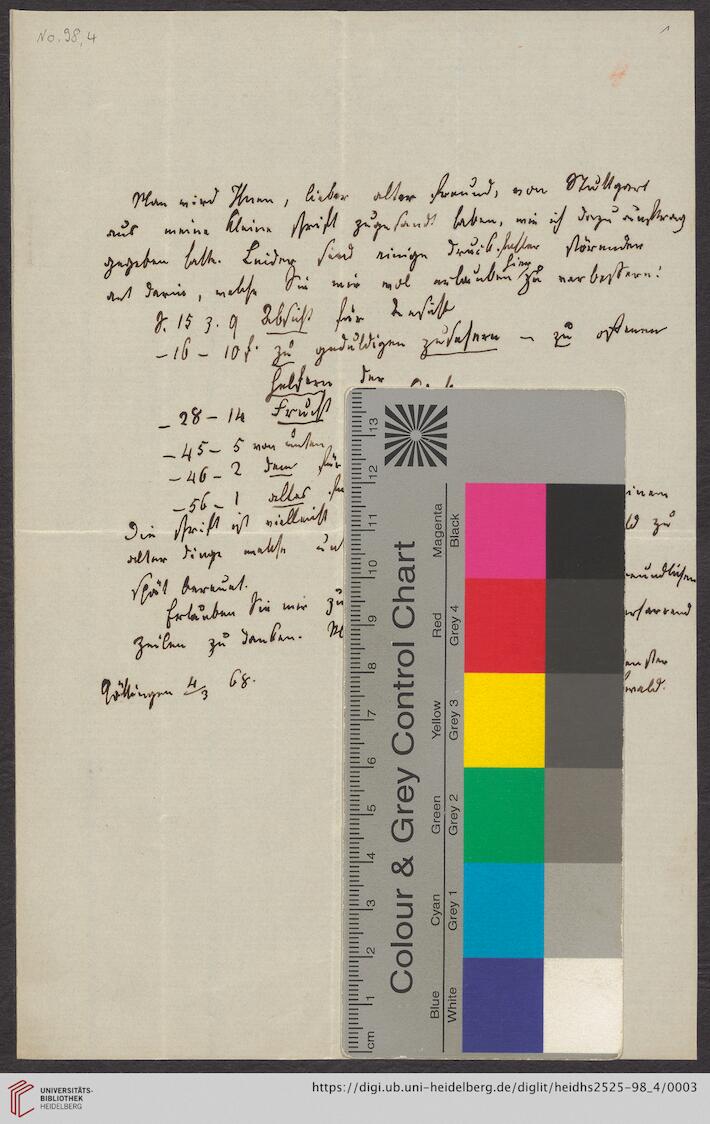 No. 98,4
1
4
Man wird Ihnen, lieber alter Freund, von Stuttgart
aus meine kleine Schrift zugesandt haben, wie ich dazu Auftrag
gegeben hatte. Leider sind einige Druckfehler störender
art darin, welche Sie mir wol erlauben hier zu verbessern:
S. 15 z. 9 Absicht für
– 16 – 10 f. zu geduldigen zusehern – zu offenen
Feldern der
– 28 – 14 Frucht
– 45 – 5 von unten
– 46 – 2 dem für
– 56 – 1 altes
einem
Die Schrift ist vielleicht
zu
alter dinge welche
freundlichen
spät bereuet.
Erlauben Sie mir zu
verharrend
Zeilen zu danken.
Göttingen 4/3 68.
Colour & Grey Control Chart
Blue Cyan Green Yellow Red Magenta
White Grey 1 Grey 2 Grey 3 Grey 4 Black
cm 1 2 3 4 5 6 7 8 9 10 11 12 13
UNIVERSITÄTS-
BIBLIOTHEK
HEIDELBERG
https://digi.ub.uni-heidelberg.de/diglit/heidhs2525-98_4/0003